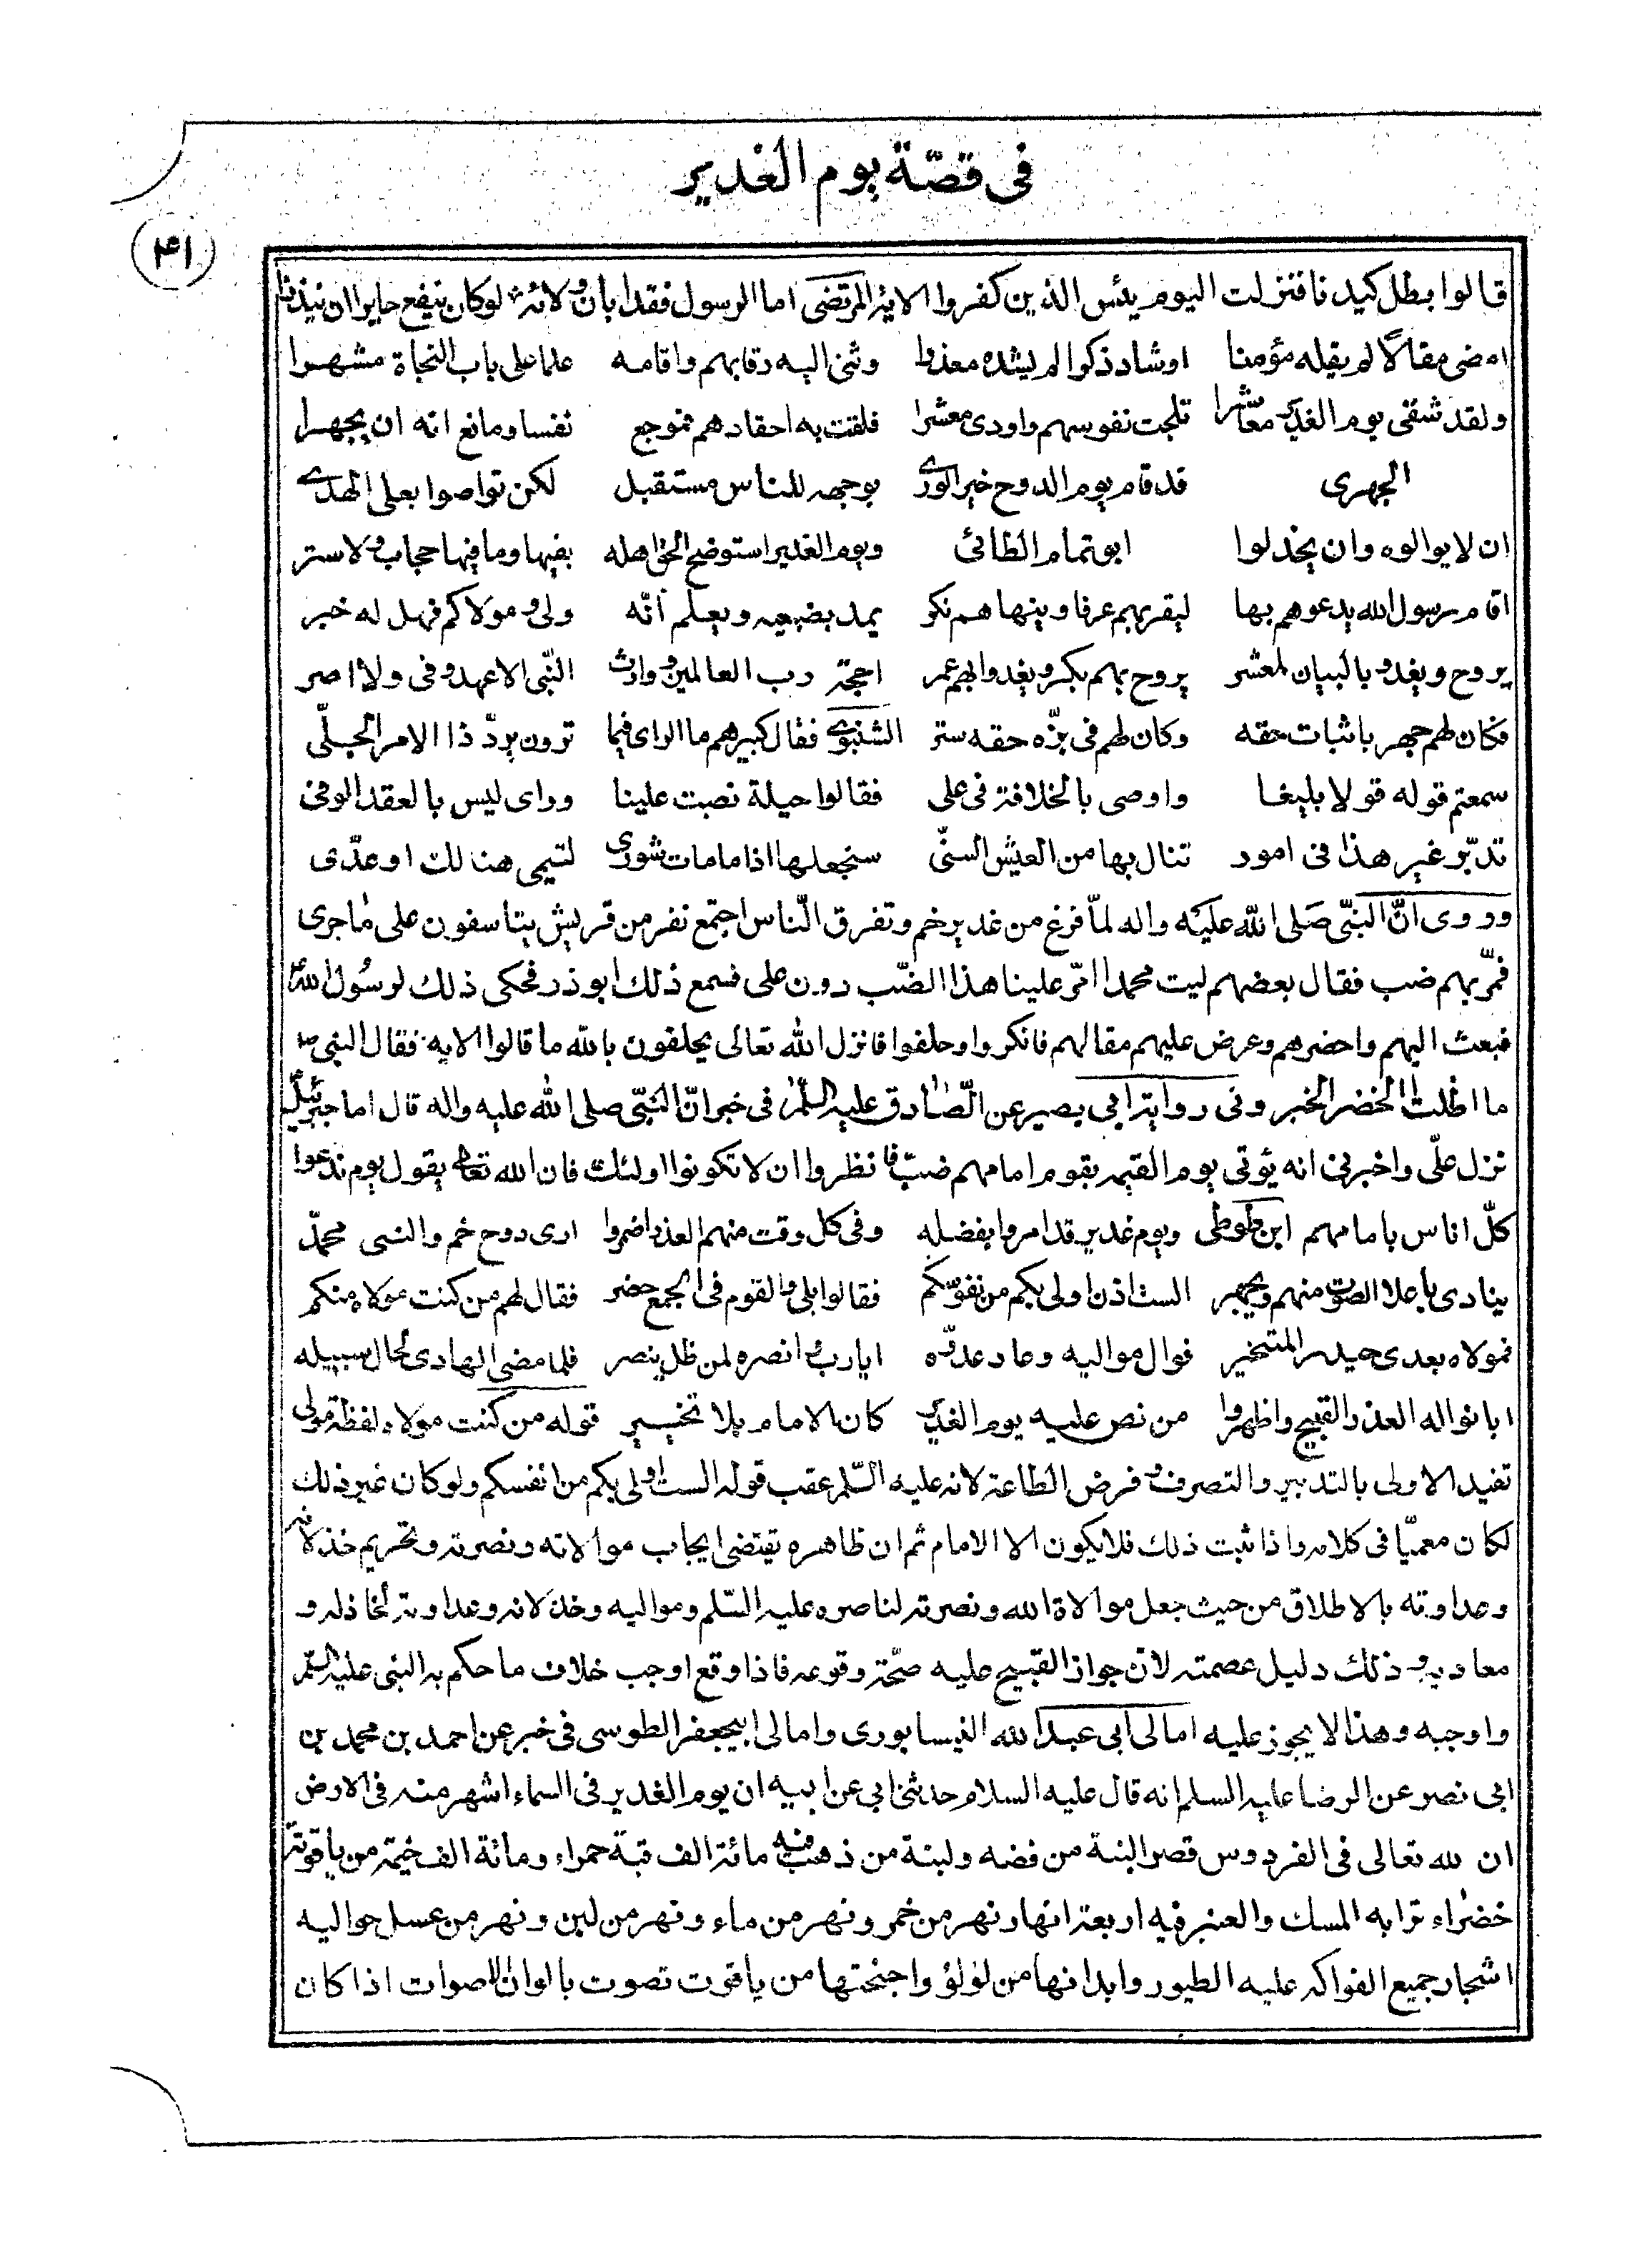 فى قصّة يوم الغدير
٤١
قالوا بطل كيدنا فنزلت اليوم يئس الذين كفروا الاية المرتضى اما الرسول فقد ابان ولائه لو كان ينفع حايرا ان ينذرا
امضى مقالا لم يقله مؤمنا اوشاد ذكرا لم يشده معذرا وثنى اليه رقابهم واقامه علما على باب النجاة مشهرا
ولقد شفى يوم الغدير معاشرا ثلجت نفوسهم واودى معشرا فلقت به احقادهم فموجع نفسا ومانع انه ان يجهرا
الجهرى قد قام يوم الدوح خير الورى بوجهه للناس مستقبل لكن تواصوا بعلى الهدى
ان لا يوالوه وان يخذلوا ابو تمام الطائى ويوم الغدير استوضح الحق اهله بفيها وما فيها حجاب ولا ستر
اقام رسول الله يدعوهم بها ليقربهم عرفا وينهاهم نكر يمد بضبعيه ويعلم انّه ولى ومولاكم فهل له خبر
يروح ويغدو بالبيان لمعشر يروح بهم بكر ويغدو ابهم عمر احجة رب العالمين ووارث النّبى الا عهد وفى ولا اصر
فكان لهم جهر باثبات حقه وكان لهم فى بزّه حقه ستر الشنبوى فقال كبيرهم ما الراى فيما ترون يردّ ذا الامر الجلّى
سمعتم قوله قولا بليغا واوصى بالخلافة فى على فقالوا حيلة نصبت علينا وراى ليس بالعقد الوفى
تدبّر غير هذا فى امور تنال بها من العيش السنّى سنجعلها اذا ما مات شورى لتيمى هنالك او عدّى
وروى انّ النبىّ صلى الله عليه واله لمّا فرغ من غدير خم وتفرق النّاس اجتمع نفر من قريش يتاسفون على ما جرى
فمرّ بهم ضب فقال بعضهم ليت محمدا امّر علينا هذا الضّب دون على فسمع ذلك ابوذر فحكى ذلك لرسول الله
فبعث اليهم واحضرهم وعرض عليهم مقالهم فانكروا وحلفوا فانزل الله تعالى يحلفون بالله ما قالوا الايه فقال النبى ص
ما اظلت الخضر الخبر وفى رواية ابى بصير عن الصّادق عليه السّلم فى خبر انّ النبّى صلى الله عليه واله قال اما جبرئيل
نزل علّى واخبرنى انه يؤتى يوم القيمه بقوم امامهم ضبّ فانظروا ان لا تكونوا اولئك فان الله تعالى يقول يوم ندعوا
كلّ اناس بامامهم ابن طوطى ويوم غدير قد امروا بفضله وفى كل وقت منهم الغدر اضمروا ارى دوح خم والنبى محمدّ
ينادى باعلا الصوت منهم ويجهر الست اذن اولى بكم من نفوسكم فقالوا بلى والقوم فى الجمع حضر فقال لهم من كنت مولاه منكم
فمولاه بعدى حيدر المتخير فوال مواليه وعاد عدوّه ايا رب انصره لمن ظل ينصر فلما مضى الهادى لحال سبيله
ابانوا له الغدر القبيح واظهروا من نص عليه يوم الغدير كان الامام بلا تخيير قوله من كنت مولاه لفظة مولى
تفيد الاولى بالتدبير والتصرف وفرض الطاعة لانه عليه السّلم عقب قوله الست اولى بكم من انفسكم ولو كان غير ذلك
لكان معميّا فى كلامه واذا ثبت ذلك فلا يكون الا الامام ثم ان ظاهره يقتضى ايجاب موالاته ونصرته وتحريم خذلانه
وعداوته بالاطلاق من حيث جعل موالاة الله ونصرته لناصره عليه السّلم ومواليه وخذلانه وعداوته لخاذله و
معاديه وذلك دليل عصمته لان جواز القبيح عليه صحّة وقوعه فاذا وقع اوجب خلاف ما حكم به النبى عليه السّلم
واوجبه وهذا لا يجوز عليه امالى ابى عبد الله النيسابورى وامالى ابيجعفر الطوسى فى خبر عن احمد بن محمد بن
ابى نصر عن الرضا عليه السلم انه قال عليه السلام حدثنى ابى عن ابيه ان يوم الغدير فى السماء اشهر منه فى الارض
ان لله تعالى فى الفردوس قصر البنة من فضه ولبنة من ذهب فيه مائة الف قبة حمراء ومائة الف خيمة من ياقوتة
خضراء ترابه المسك والعنبر فيه اربعة انهار نهر من خمر ونهر من ماء ونهر من لبن ونهر من عسل حواليه
اشجار جميع الفواكه عليه الطيور وابدانها من لؤلؤ واجنحتها من ياقوت تصوت بالوان الاصوات اذا كان